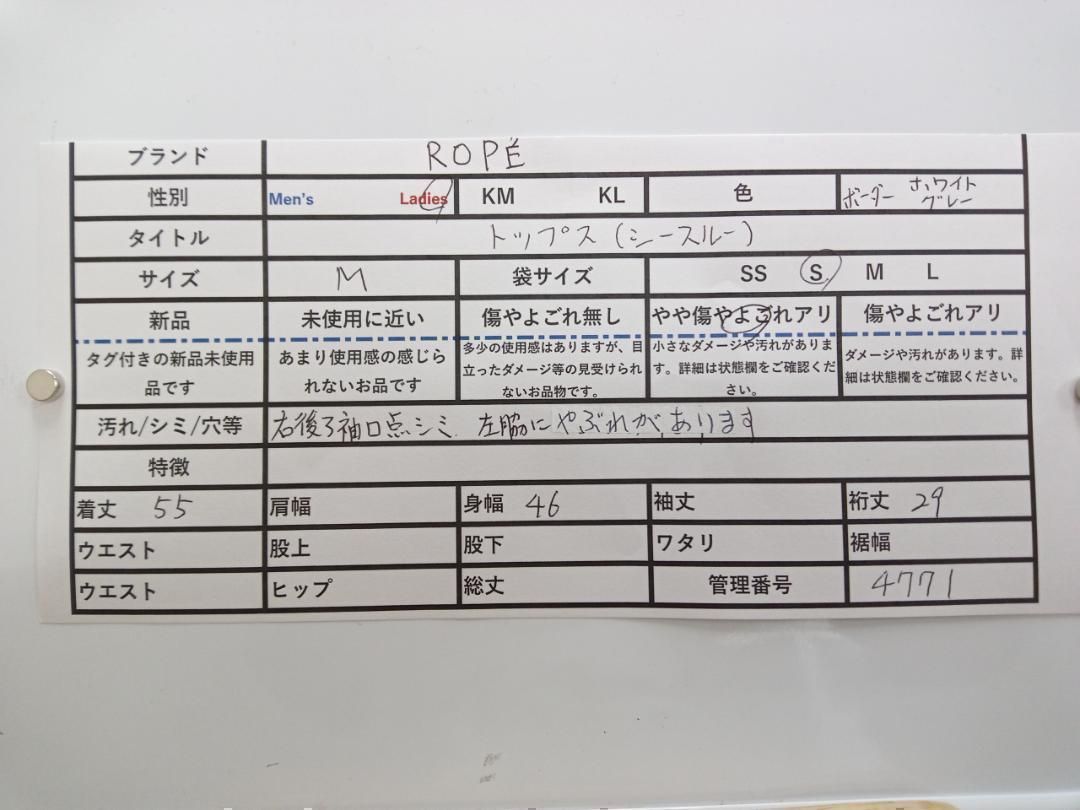 ブランド ROPÉ
性別 Men's Ladies KM KL 色 ボーダー ホワイト グレー
タイトル トップス (シースルー)
サイズ M 袋サイズ SS S M L
新品 未使用に近い 傷やよごれ無し やや傷やよごれアリ 傷やよごれアリ
タグ付きの新品未使用
品です
あまり使用感の感じら
れないお品です
多少の使用感はありますが、目
立ったダメージ等の見受けられ
ないお品物です。
小さなダメージや汚れがありま
す。詳細は状態欄をご確認くだ
さい。
ダメージや汚れがあります。詳
細は状態欄をご確認ください。
汚れ/シミ/穴等 右後ろ袖口点シミ 左脇にやぶれがあります
特徴
着丈 55 肩幅 身幅 46 袖丈 裄丈 29
ウエスト 股上 股下 ワタリ 裾幅
ウエスト ヒップ 総丈 管理番号 4771